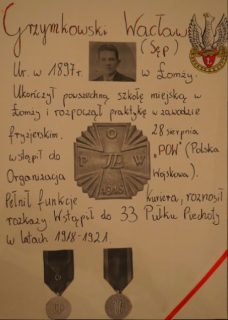 Grzymkowski Wacław
(Sęp)
Ur. w 1897r. w Łomży.
Ukończył powszechną szkołę miejską w
Łomży i rozpoczął praktykę w zawodzie
fryzjerskim. 28 sierpnia
wstąpił do "POW" (Polska
Organizacja Wojskowa).
Pełnił funkcje kuriera, roznosił
rozkazy. Wstąpił do 33 Pułku Piechoty
w latach 1918-1921.
P O W
1915